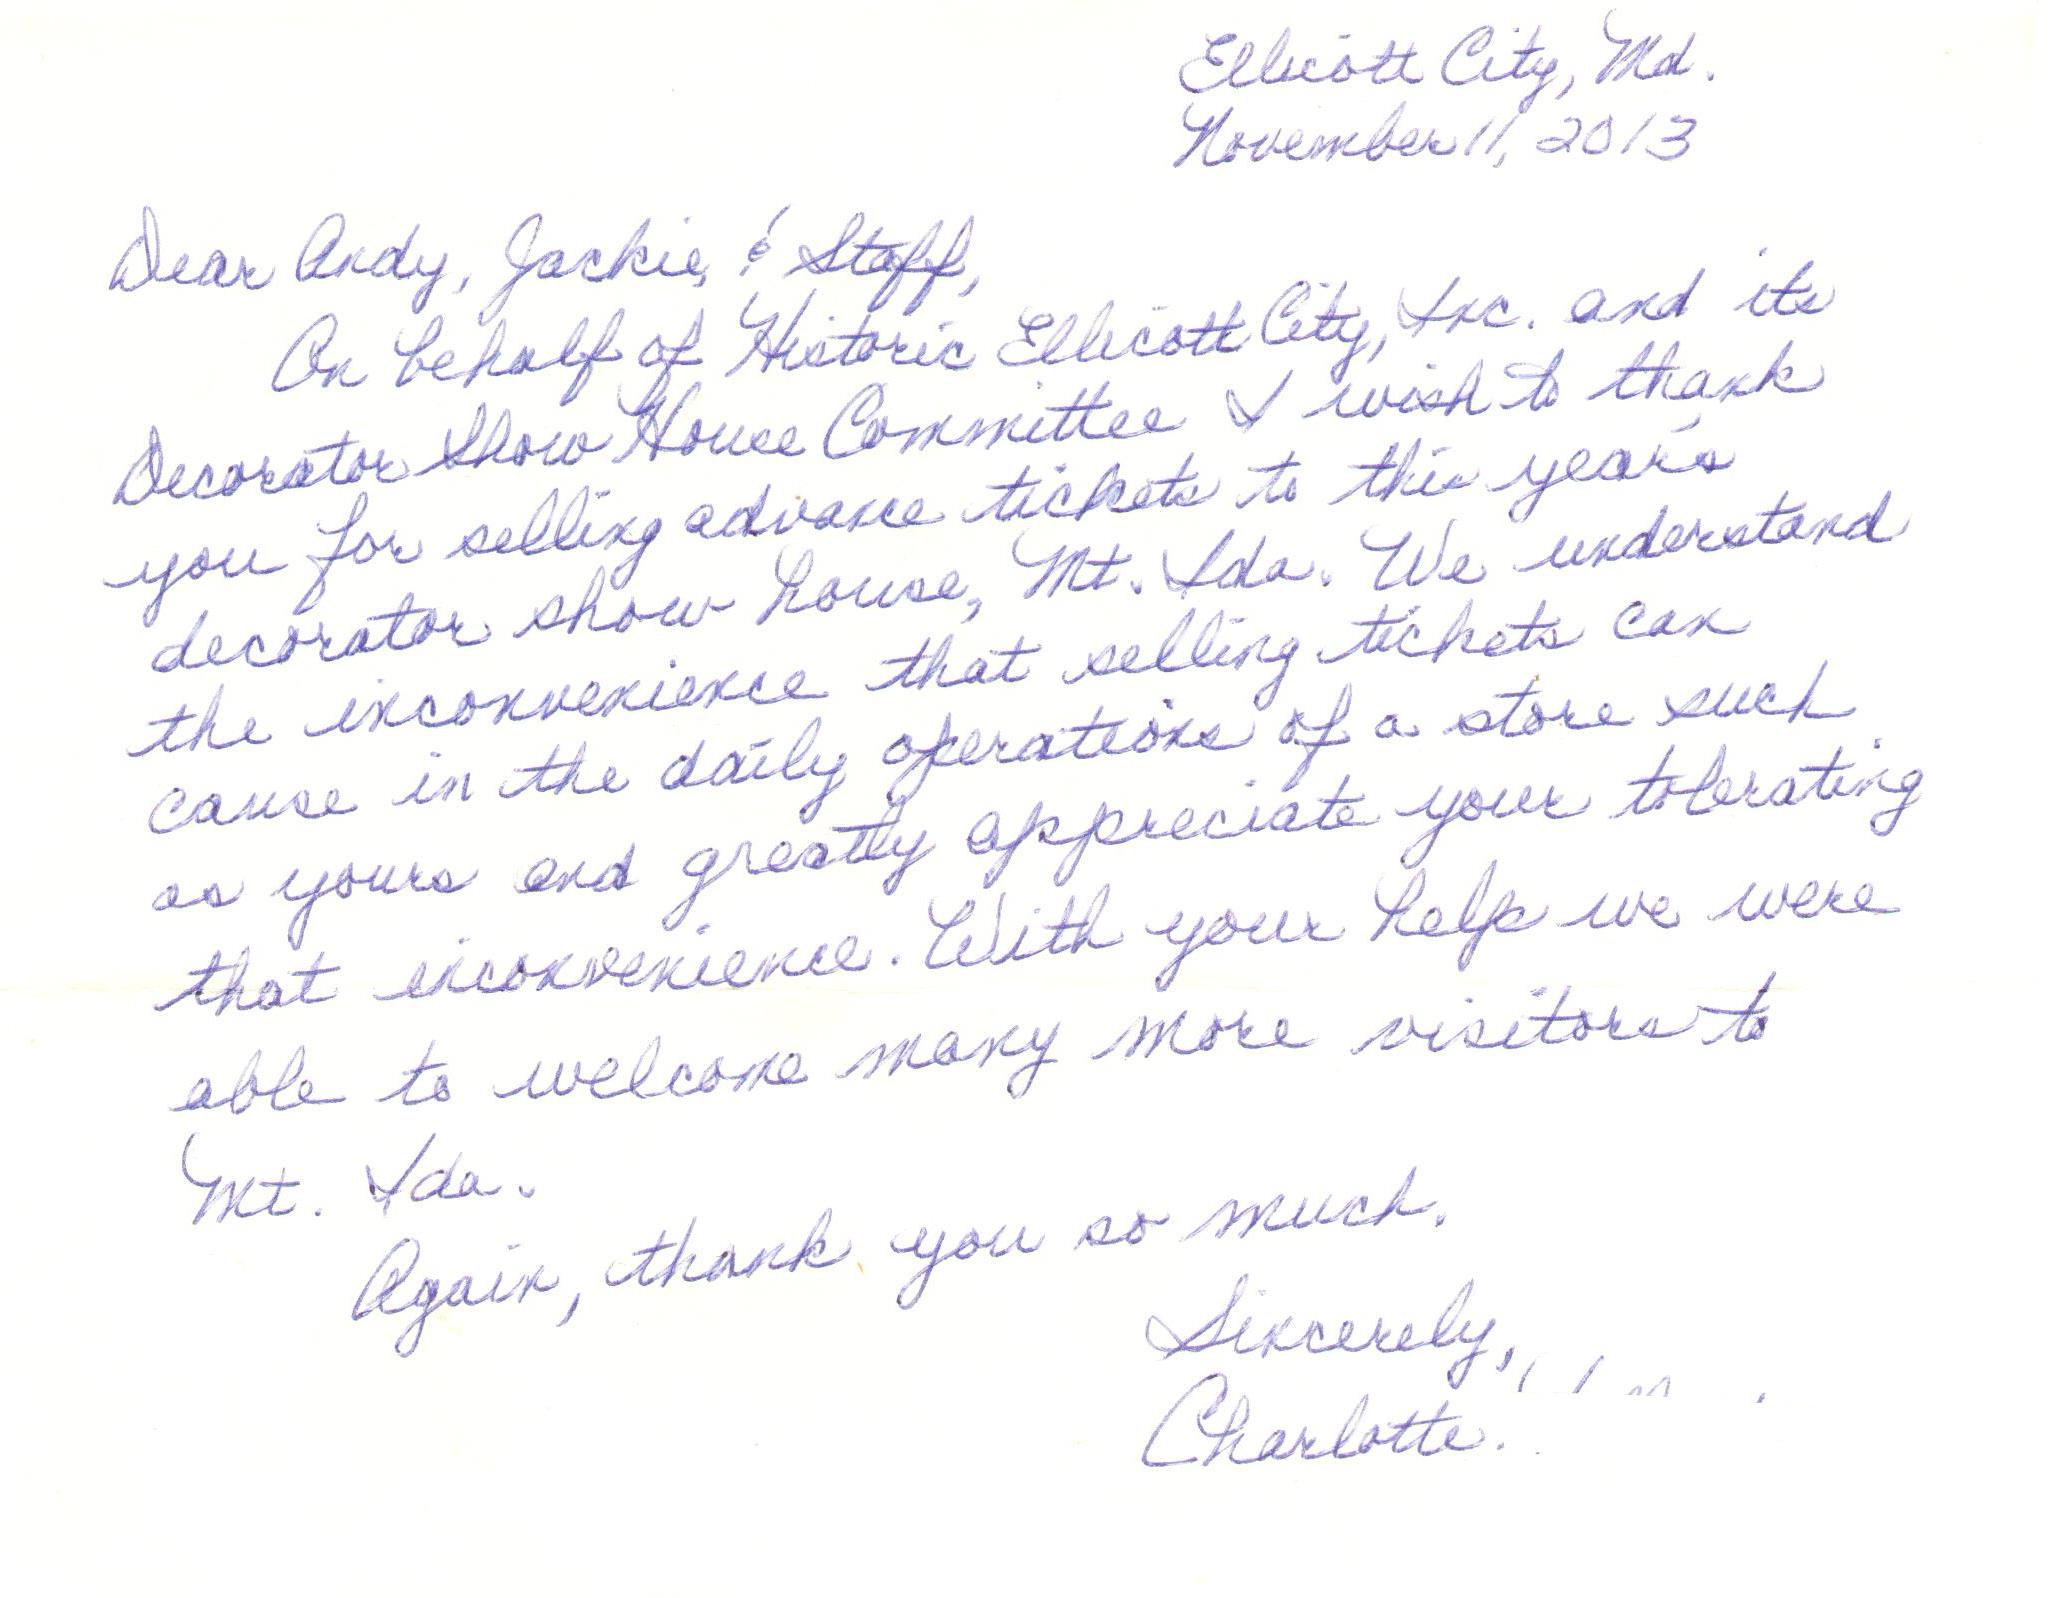 Ellicott City, Md.
November 11, 2013
Dear Andy, Jackie, & Staff,
On behalf of Historic Ellicott City, Inc. and its
Decorator Show House Committee I wish to thank
you for selling advance tickets to this year's
decorator show house, Mt. Ida. We understand
the inconvenience that selling tickets can
cause in the daily operations of a store such
as yours and greatly appreciate your tolerating
that inconvenience. With your help we were
able to welcome many more visitors to
Mt. Ida.
Again, thank you so much.
Sincerely,
Charlotte